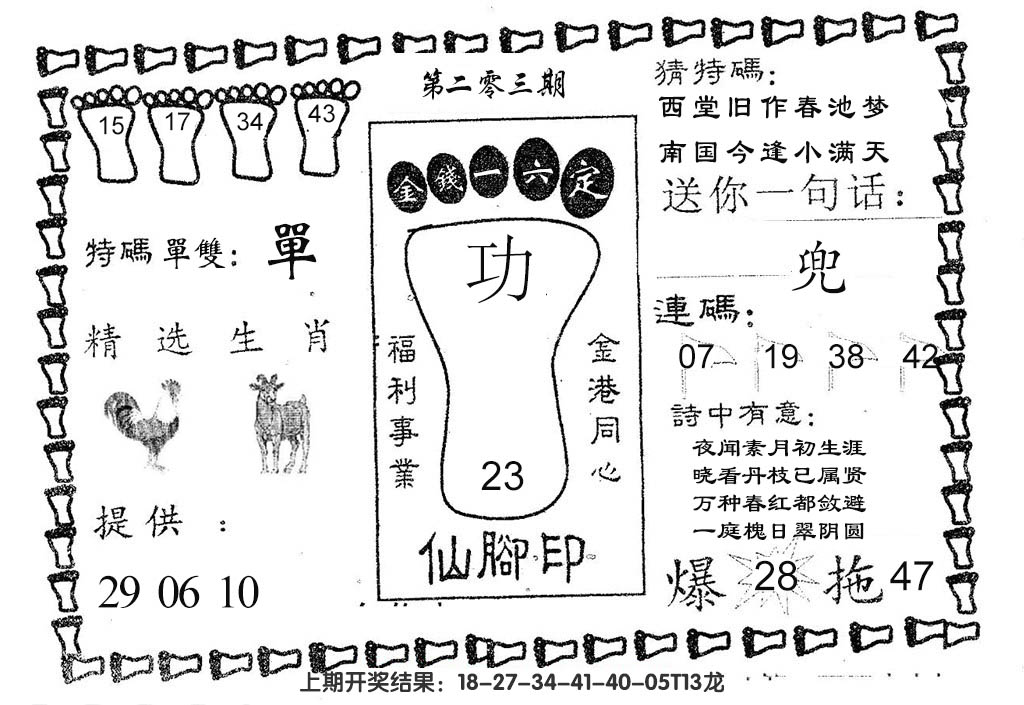 第二零三期
15 17 34 43
特碼單雙：單
精选生肖
提供：
29 06 10
金錢一六定
功
23
福利事業
金港同心
仙腳印
猜特碼：
西堂旧作春池梦
南国今逢小满天
送你一句话：
兜
連碼：
07 19 38 42
詩中有意：
夜闻素月初生涯
晓看丹枝已属贤
万种春红都敛避
一庭槐日翠阴圆
爆 28 拖 47
上期开奖结果：18-27-34-41-40-05T13龙